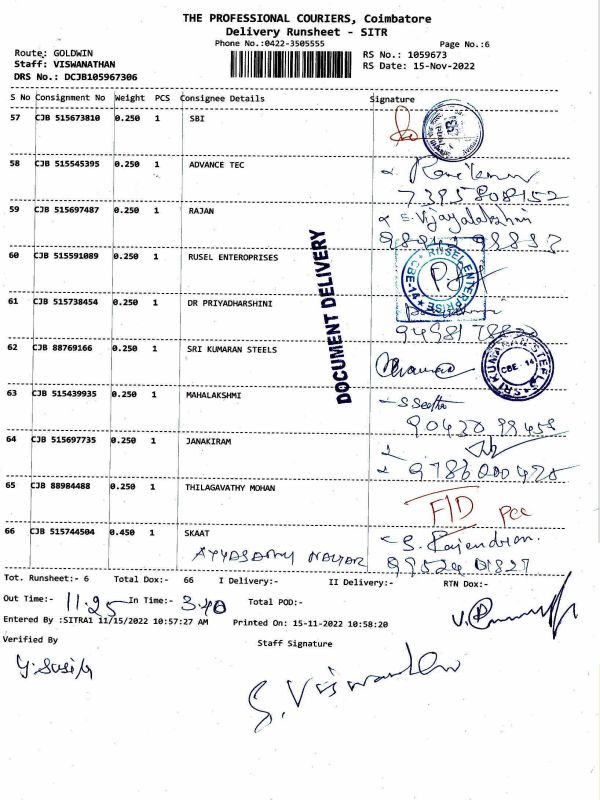 THE PROFESSIONAL COURIERS, Coimbatore
Delivery Runsheet - SITR
Phone No.:0422-3505555 Page No.:6
Route: GOLDWIN RS No.: 1059673
Staff: VISWANATHAN RS Date: 15-Nov-2022
DRS No.: DCJB105967306
S No Consignment No Weight PCS Consignee Details Signature
57 CJB 515673810 0.250 1 SBI
58 CJB 515545395 0.250 1 ADVANCE TEC
7395808152
59 CJB 515697487 0.250 1 RAJAN S. Vijayalakshmi
60 CJB 515591089 0.250 1 RUSEL ENTEROPRISES
RUSEL ENTERPRISE CBE-14
61 CJB 515738454 0.250 1 DR PRIYADHARSHINI
DOCUMENT DELIVERY
62 CJB 88769166 0.250 1 SRI KUMARAN STEELS
SRI KUMARAN STEELS CBE - 14
63 CJB 515439935 0.250 1 MAHALAKSHMI
64 CJB 515697735 0.250 1 JANAKIRAM
65 CJB 88984488 0.250 1 THILAGAVATHY MOHAN
66 CJB 515744504 0.450 1 SKAAT S. Rajendran.
AYYASAMY NAGAR
Tot. Runsheet:- 6 Total Dox:- 66 I Delivery:- II Delivery:- RTN Dox:-
Out Time:- 11.25 In Time:- 3.40 Total POD:-
Entered By :SITRA1 11/15/2022 10:57:27 AM Printed On: 15-11-2022 10:58:20
Verified By Staff Signature
S. Viswanathan